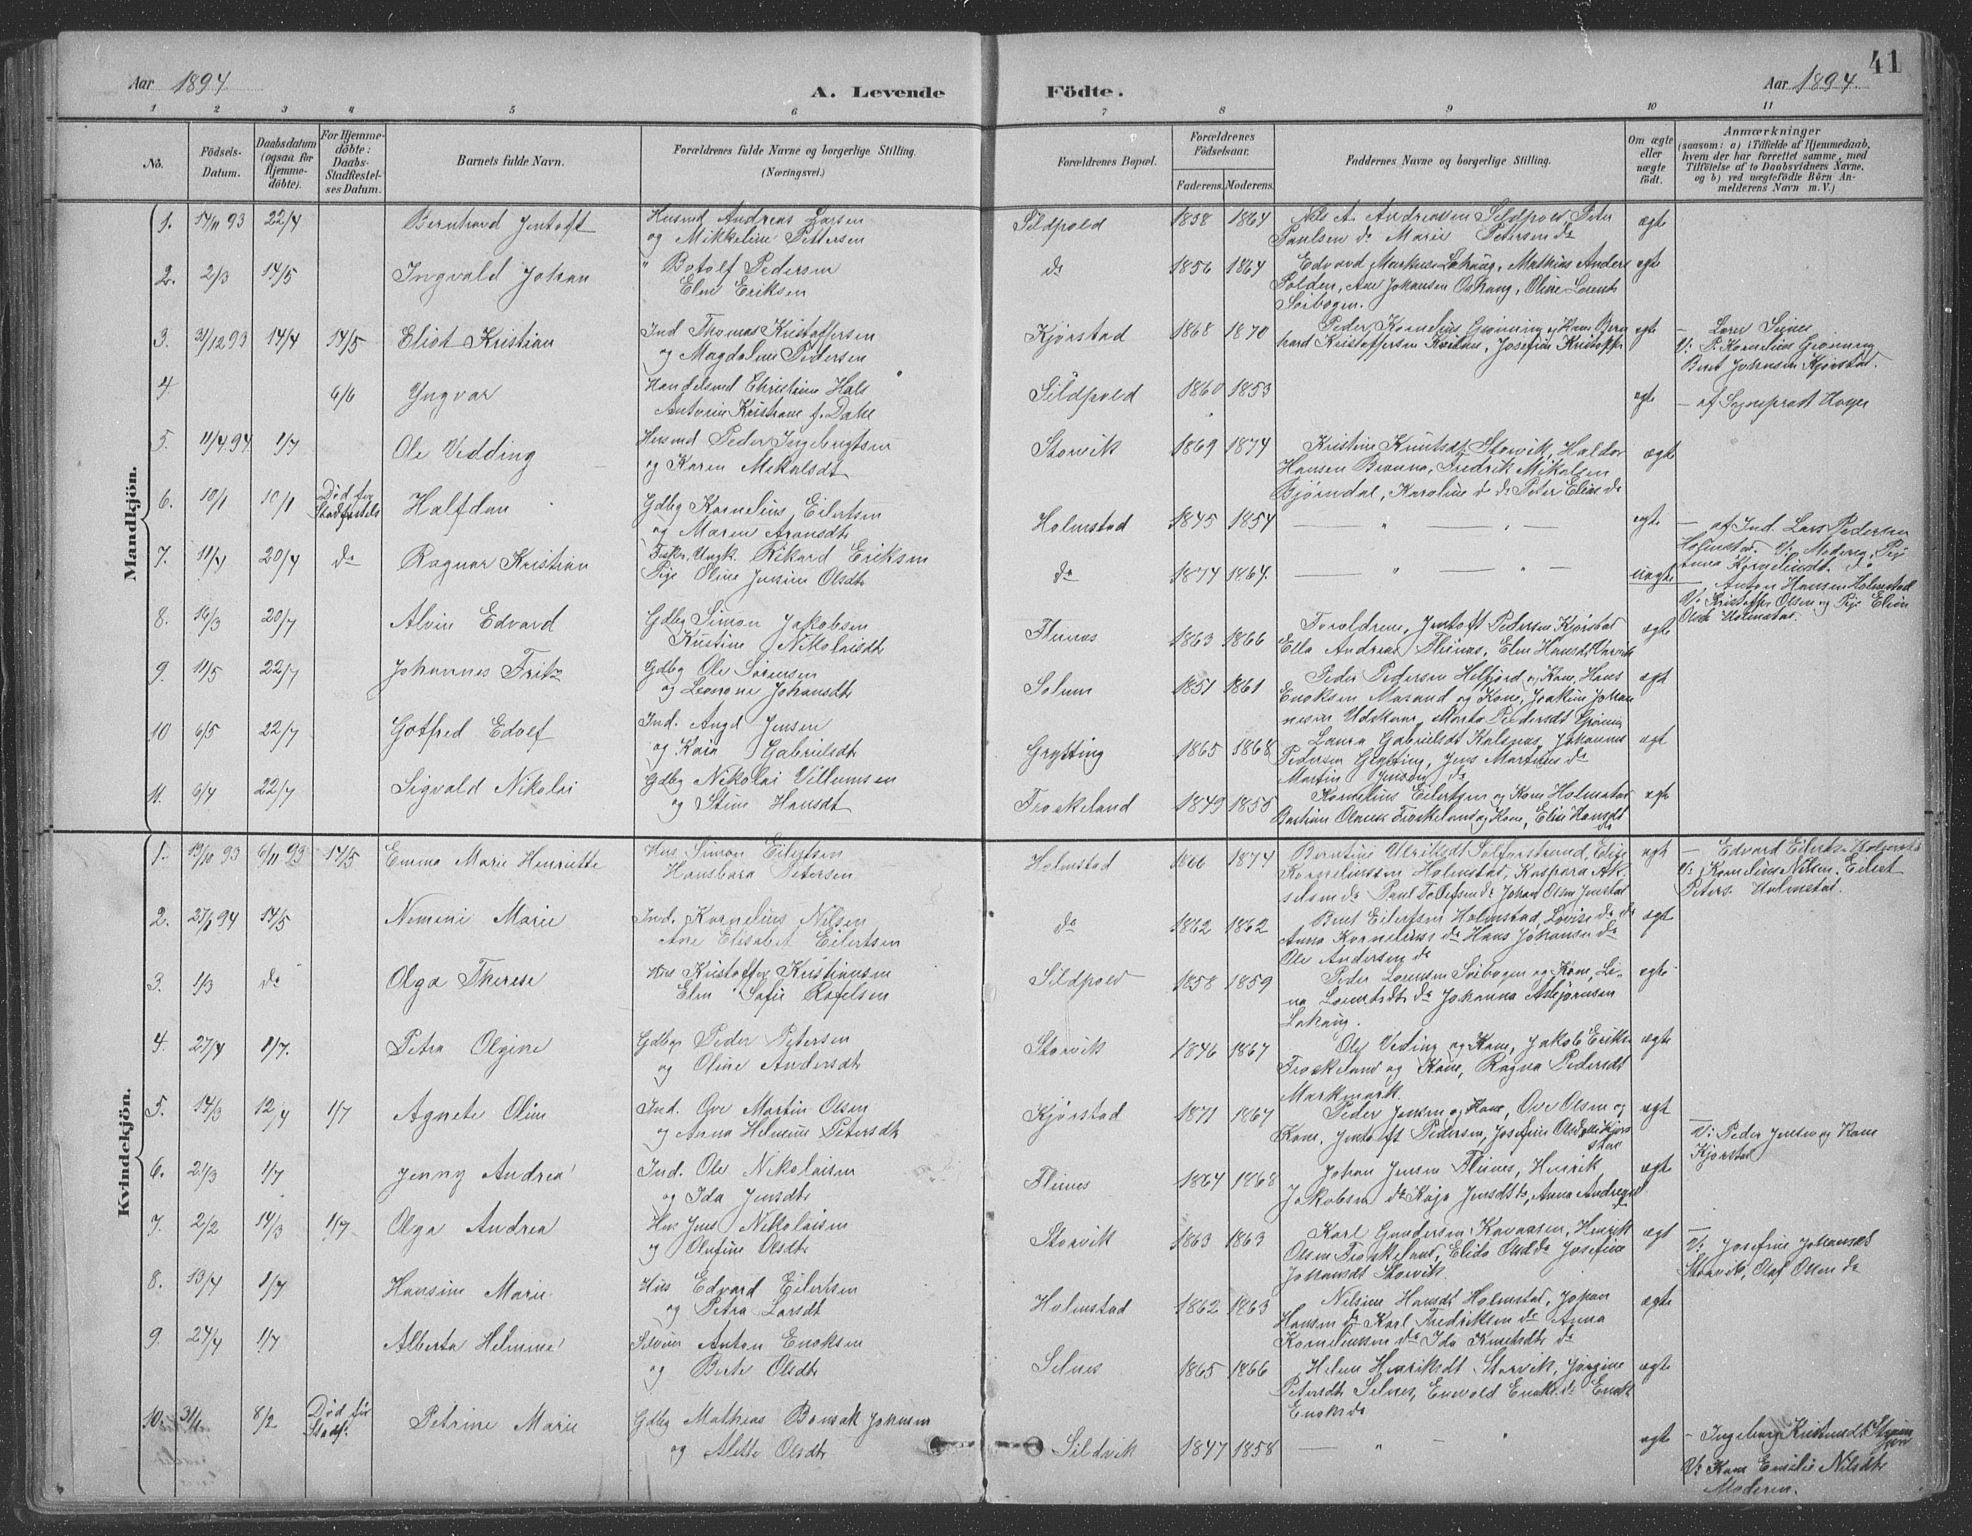 41
Aar 1894.
A. Levende Födte.
Aar 1894.
1 2 3 4 5 6 7 8 9 10 11
No.
Födsels-
Datum.
Daabsdatum
(ogsaa for
Hjemme-
döbte).
For Hjemme-
döbte:
Daabs-
Stadfæstel-
ses Datum.
Barnets fulde Navn.
Forældrenes fulde Navne og borgerlige Stilling.
(Næringsvei.)
Forældrenes Bopæl.
Forældrenes
Födselsaar.
Faderens. Moderens.
Faddernes Navne og borgerlige Stilling.
Om ægte
eller
uægte
födt.
Anmærkninger
(saasom: a) i Tilfælde af Hjemmedaab,
hvem der har forrettet samme, med
Tilföielse af to Daabsvidners Navne,
og b) ved uægtefödte Börn An-
melderens Navn m. V.)
Mandkjön.
1. 17/11 93 22/4 Bernhard Jentoft
Husmd Andreas Larsen
og Mikkeline Pettersen
Sildpold 1858 1864
Nils A. Andreassen Sildpold, Peter
Paulsen do Marie Petersen do
ægte
2. 2/3 14/5 Ingvald Johan
" Botolf Pedersen
Eline Eriksen
do 1856 1864
Edvard Markus Lahaug, Mathias Anders
Polden, Ane Johansen Oshaug, Oline Lorents
Sørbogen.
egte
3. 31/12 93 14/4 14/5 Eliot Kristian
Ind Thomas Kristoffersen
og Magdaline Pedersen
Kjørstad 1868 1870
Peder Kornelius Grønning og Kone Bern
hard Kristoffersen Josefine Kristoffer
egte
V: P. Kornelius Grønning
Beret Johansen Kjørstad.
4. 6/6 Yngvar
Handelsmd Christian Hals
Antonie Kristiane f. Dahl
Sildpold 1860 1853
egte
- af Sogneprest Høyer
5. 11/4 94 1/7 Ole Vedding
Husmd Peder Ingebrigtsen
og Karen Mekalsdt
Storvik 1869 1874
Kristine Knutsdt Storvik, Haldor
Hansen Brønna, Fredrik Mikalsen
Bjørndal, Karoline do do Peter Elias do
ægte
6. 10/1 10/1 Død før
Stadfæstels
Halfdan
Gdbg Kornelius Eilertsen
og Maren Aronsdt
Holmstad 1845 1854
egte
- af Ind. Lars Pedersen
Holmstad. V: Moderen, Pige
Anna Kornelinsdt. do
7. 11/4 20/4 do Ragnar Kristian
Fisker, Ungk. Rikard Eriksen
Pige Oline Jensine Olsdt
do 1874 1864.
uægte
- Anton Hansen Holmstad
V: Kristoffer Olsen og Pige Eline
Olsdt Holmstad.
8. 16/3 20/7 Alvin Edvard
Gdbg Simon Jakobsen
Kristine Nikolaisdt
Flines 1863 1866
Foreldrene, Jentoft Pedersen Kjørstad
Ella Andrea Flines, Elen Hansdt
ægte
9. 11/5 22/7 Johannes Fritz
Gdbg Ole Sørensen
og Leonore Johansdt
Solum 1851 1861
Peder Pedersen Helfjord og Kone, Hans
Enoksen Masand og Kone, Joakim Johan
nesen Udskor, Marta Pedersdt Grønning
ægt
10 6/5 22/7 Gotfred Edolf
Ind. Angel Jensen
og Kaia Gabrielsdt
Grytting 1865 1868
Laura Gabrielsdt Kalsnes, Johannes
Pedersen Grytting, Jens Martinus do
Martin Jensen do
ægt
11. 6/7 22/7 Sigvald Nikolai
Gdbg Nikolai Villumsen
og Stine Hansdt
Froskeland 1849 1855
Kornelius Eilertsen og Kone Holmstad
Bastian Olaus Froskeland og Kone, Elise Hansdt
do
egte
Kvindekjön.
1. 19/10 93 6/11 93 14/5 Emma Marie Henriette
Hus. Simon Eilertsen
Hansbara Petersen
Holmstad 1866 1874
Berntine Ulriksdt Selforstrand, Elise
Korneliussen Holmstad, Kaspara Ak
selsen do Paul Tollefsen do Johan Olsen Jenstad
egt
- Edvard Eilerts. Holmstad
V: Kornelius Nilsen, Eilert
Peters Holmstad.
2. 94 14/5 Nemmi Marie
Ind. Kornelius Nilsen
Ane Elisabet Eilertsen
do 1862 1862
Beret Eilertsen Holmstad, Lovise do do
Anna Kornelius do Hans Johansen do
Ole Andersen do
egt
3. 1/3 do Olga Therese
Hus Kristoffer Kristiansen
Elen Sofie Rafelsen
Sildpold 1858 1859
Peder Lorensen Sørbogen og Kone, Li-
na Lorentsdt do Johanna Asbjørnsen
Lahaug.
egte
4. 27/4 1/7. Petra Olgine
Gdbg Peder Petersen
og Oline Andersdt
Storvik 1846 1867
Ole Veding og Kone, Jakob Eriks
Froskeland og Kone, Ragna Pedersdt
Markmark.
ægte
5. 14/3 12/4 1/7 Agnete Oline
Ind. Ove Martin Olsen
og Anna Helmine Petersdt
Kjørstad 1871 1867
Peder Jensen og Kone, Ove Olsen og
Kone, Jentoft Pedersen, Josefine Olsdt
ægt
V: Peder Jensen og Kone
Kjørstad
6. 21/3 1/7 Jenny Andrea
Ind. Ole Nikolaisen
og Ida Jensdt
Flines 1864 1868
Johan Jensen Flines, Henrik
Jakobsen do Kaja Jensdt do, Anna Andreas
ægte
7. 2/2 14/3 1/7 Olga Andrea
Hus Jens Nikolaisen
og Olufine Olsdt
Storvik 1863 1863
Karl Gundersen Kavaasen, Henrik
Olsen Froskeland, Elida Olsd do Josefine
Johansdt Storvik.
ægt
V: Josefine Johansdt
Storvik, Olaf Olsen do
8. 13/4 1/7 Hansine Marie
Hus Edvard Eilertsen
og Petra Larsdt
Holmstad 1862 1863
Nelsine Hansdt Holmstad, Johan
Hansen do Karl Fredriksen do Anna
Korneliussen do Ida Knutsdt do
ægte
9. 24/4 1/7 Alberta Helmine
Anton Enoksen
og Berte Olsdt
Selnes 1865 1866
Helene Henriksdt Storvik, Jørgine
Petersdt Selnes, Enevold Enoks do Enok
Enoks do
ægte
10. 31/1 8/2 Død før
Stadf.
Petrine Marie
Gdbg Mathias Bonsak Johnsen
og Alette Olsdt
Sildvik 1847 1858
egte
- Ingeborg Kristensdt
V: Kone Emilie Nilsdt
Moderen.